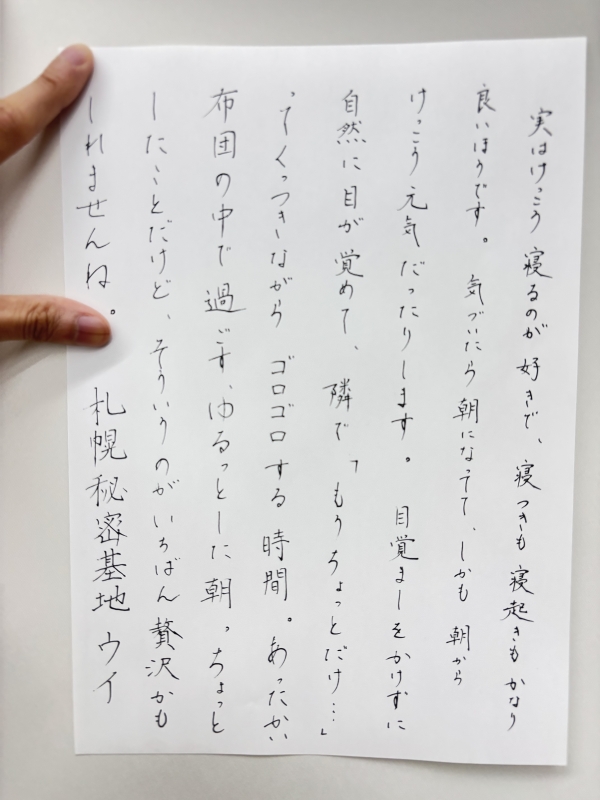 実はけっこう寝るのが好きで、寝つきも寝起きもかなり
良いほうです。気づいたら朝になってて、しかも朝から
けっこう元気だったりします。目覚ましをかけずに
自然に目が覚めて、隣で「もうちょっとだけ…」
ってくっつきながらゴロゴロする時間。あったかい
布団の中で過ごす、ゆるっとした朝。ちょっと
したことだけど、そういうのがいちばん贅沢かも
しれませんね。札幌秘密基地 ウイ